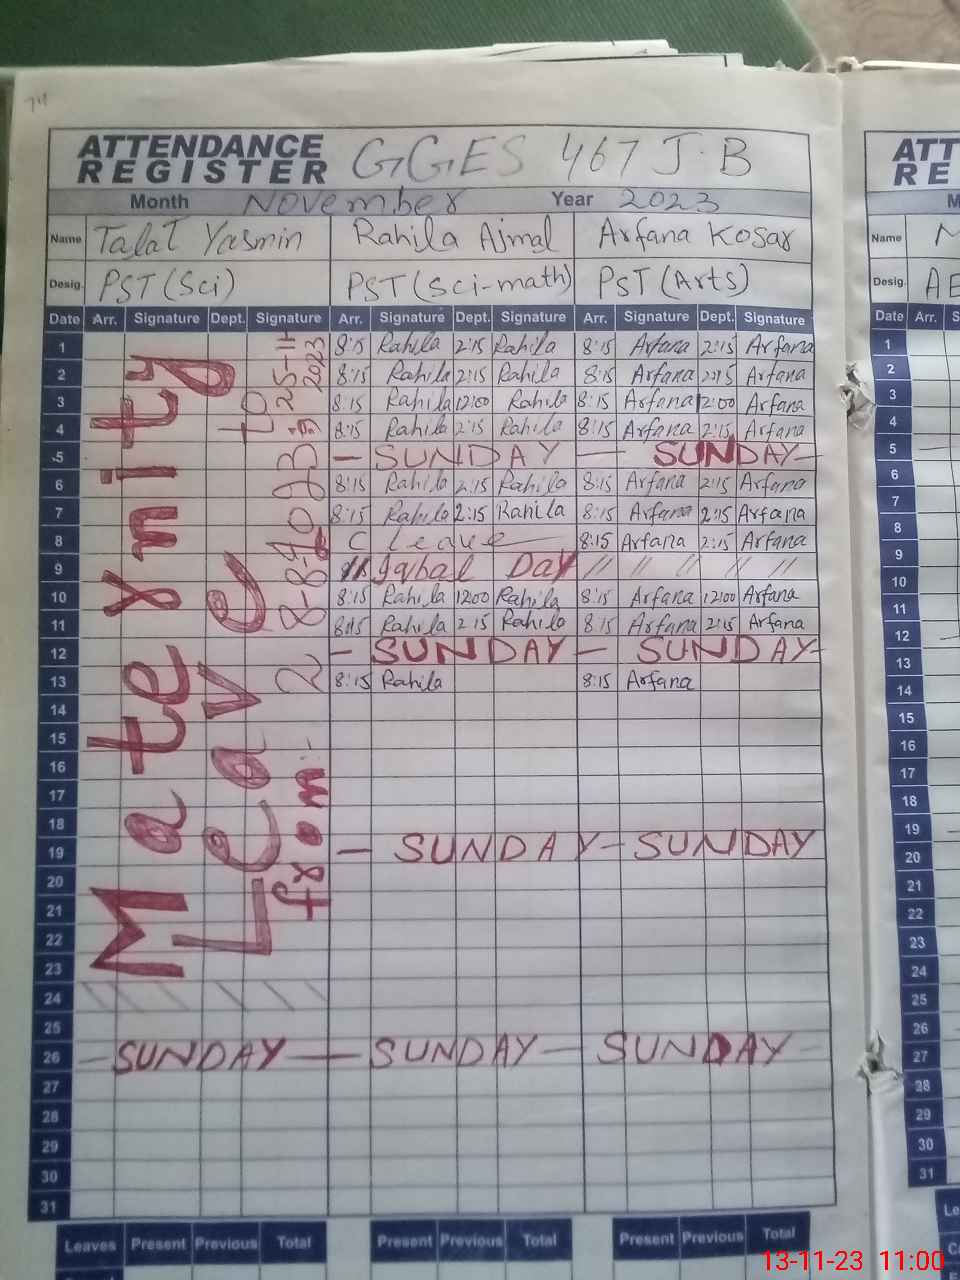 ATTENDANCE REGISTER GGES 467 J.B
Month November Year 2023
Name Talat Yasmin Rahila Ajmal Arfana Kosar
Desig. PST (Sci) PST (Sci-math) PST (Arts)
Date Arr. Signature Dept. Signature Arr. Signature Dept. Signature Arr. Signature Dept. Signature
1 8:15 Rahila 2:15 Rahila 8:15 Arfana 2:15 Arfana
2 8:15 Rahila 2:15 Rahila 8:15 Arfana 2:15 Arfana
3 8:15 Rahila 12:00 Rahila 8:15 Arfana 12:00 Arfana
4 8:15 Rahila 2:15 Rahila 8:15 Arfana 2:15 Arfana
5 - SUNDAY - SUNDAY -
6 8:15 Rahila 2:15 Rahila 8:15 Arfana 2:15 Arfana
7 8:15 Rahila 2:15 Rahila 8:15 Arfana 2:15 Arfana
8 C leave 8:15 Arfana 2:15 Arfana
9 Iqbal Day
10 8:15 Rahila 12:00 Rahila 8:15 Arfana 12:00 Arfana
11 8:15 Rahila 2:15 Rahila 8:15 Arfana 2:15 Arfana
12 - SUNDAY - SUNDAY -
13 8:15 Rahila 8:15 Arfana
14
15
16
17
18
19 - SUNDAY - SUNDAY
20
21
22
23
24
25
26 - SUNDAY - SUNDAY - SUNDAY -
27
28
29
30
31
Maternity
Leave
from:- 28-8-2023 to 25-11-2023
Leaves Present Previous Total Present Previous Total Present Previous Total
ATT
RE
M
Name M
Desig. AE
Date Arr. S
1
2
3
4
5
6
7
8
9
10
11
12
13
14
15
16
17
18
19
20
21
22
23
24
25
26
27
28
29
30
31
Le
13-11-23 11:00